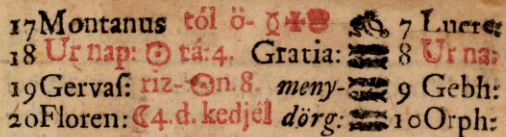 17 Montanus tól ö- ☿ ✠ 7 Lucre:
18 Ur nap: ☉ tá: 4. Gratia: 8 Ur na:
19 Gervaſ: riz- ☉n. 8. meny- 9 Gebh:
20 Floren: ☾4. d. kedjél dörg: 10 Orph: